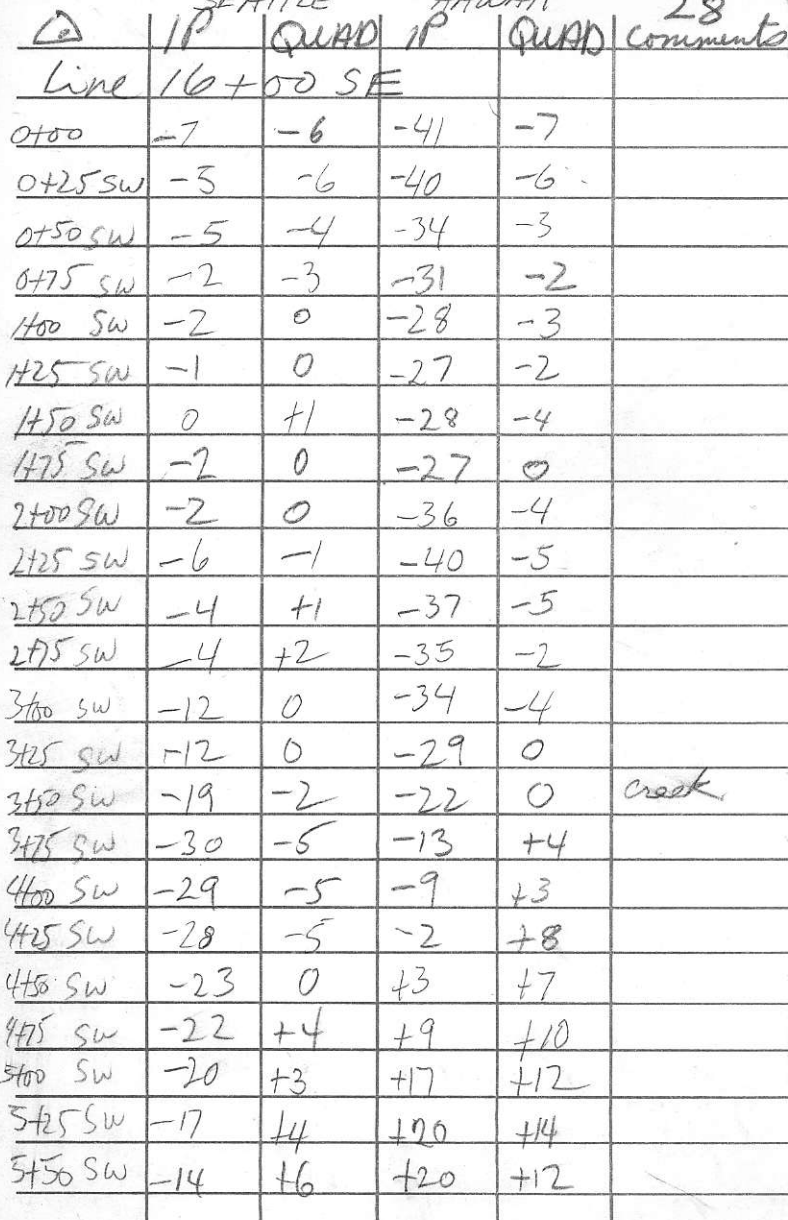 SEATTLE HAWAII 28
IP QUAD IP QUAD comments
Line 16+00 SE
0+00 -7 -6 -41 -7
0+25 SW -5 -6 -40 -6
0+50 SW -5 -4 -34 -3
0+75 SW -2 -3 -31 -2
1+00 SW -2 0 -28 -3
1+25 SW -1 0 -27 -2
1+50 SW 0 +1 -28 -4
1+75 SW -2 0 -27 0
2+00 SW -2 0 -36 -4
2+25 SW -6 -1 -40 -5
2+50 SW -4 +1 -37 -5
2+75 SW -4 +2 -35 -2
3+00 SW -12 0 -34 -4
3+25 SW -12 0 -29 0
3+50 SW -19 -2 -22 0 creek
3+75 SW -30 -5 -13 +4
4+00 SW -29 -5 -9 +3
4+25 SW -28 -5 -2 +8
4+50 SW -23 0 +3 +7
4+75 SW -22 +4 +9 +10
5+00 SW -20 +3 +17 +12
5+25 SW -17 +4 +20 +14
5+50 SW -14 +6 +20 +12